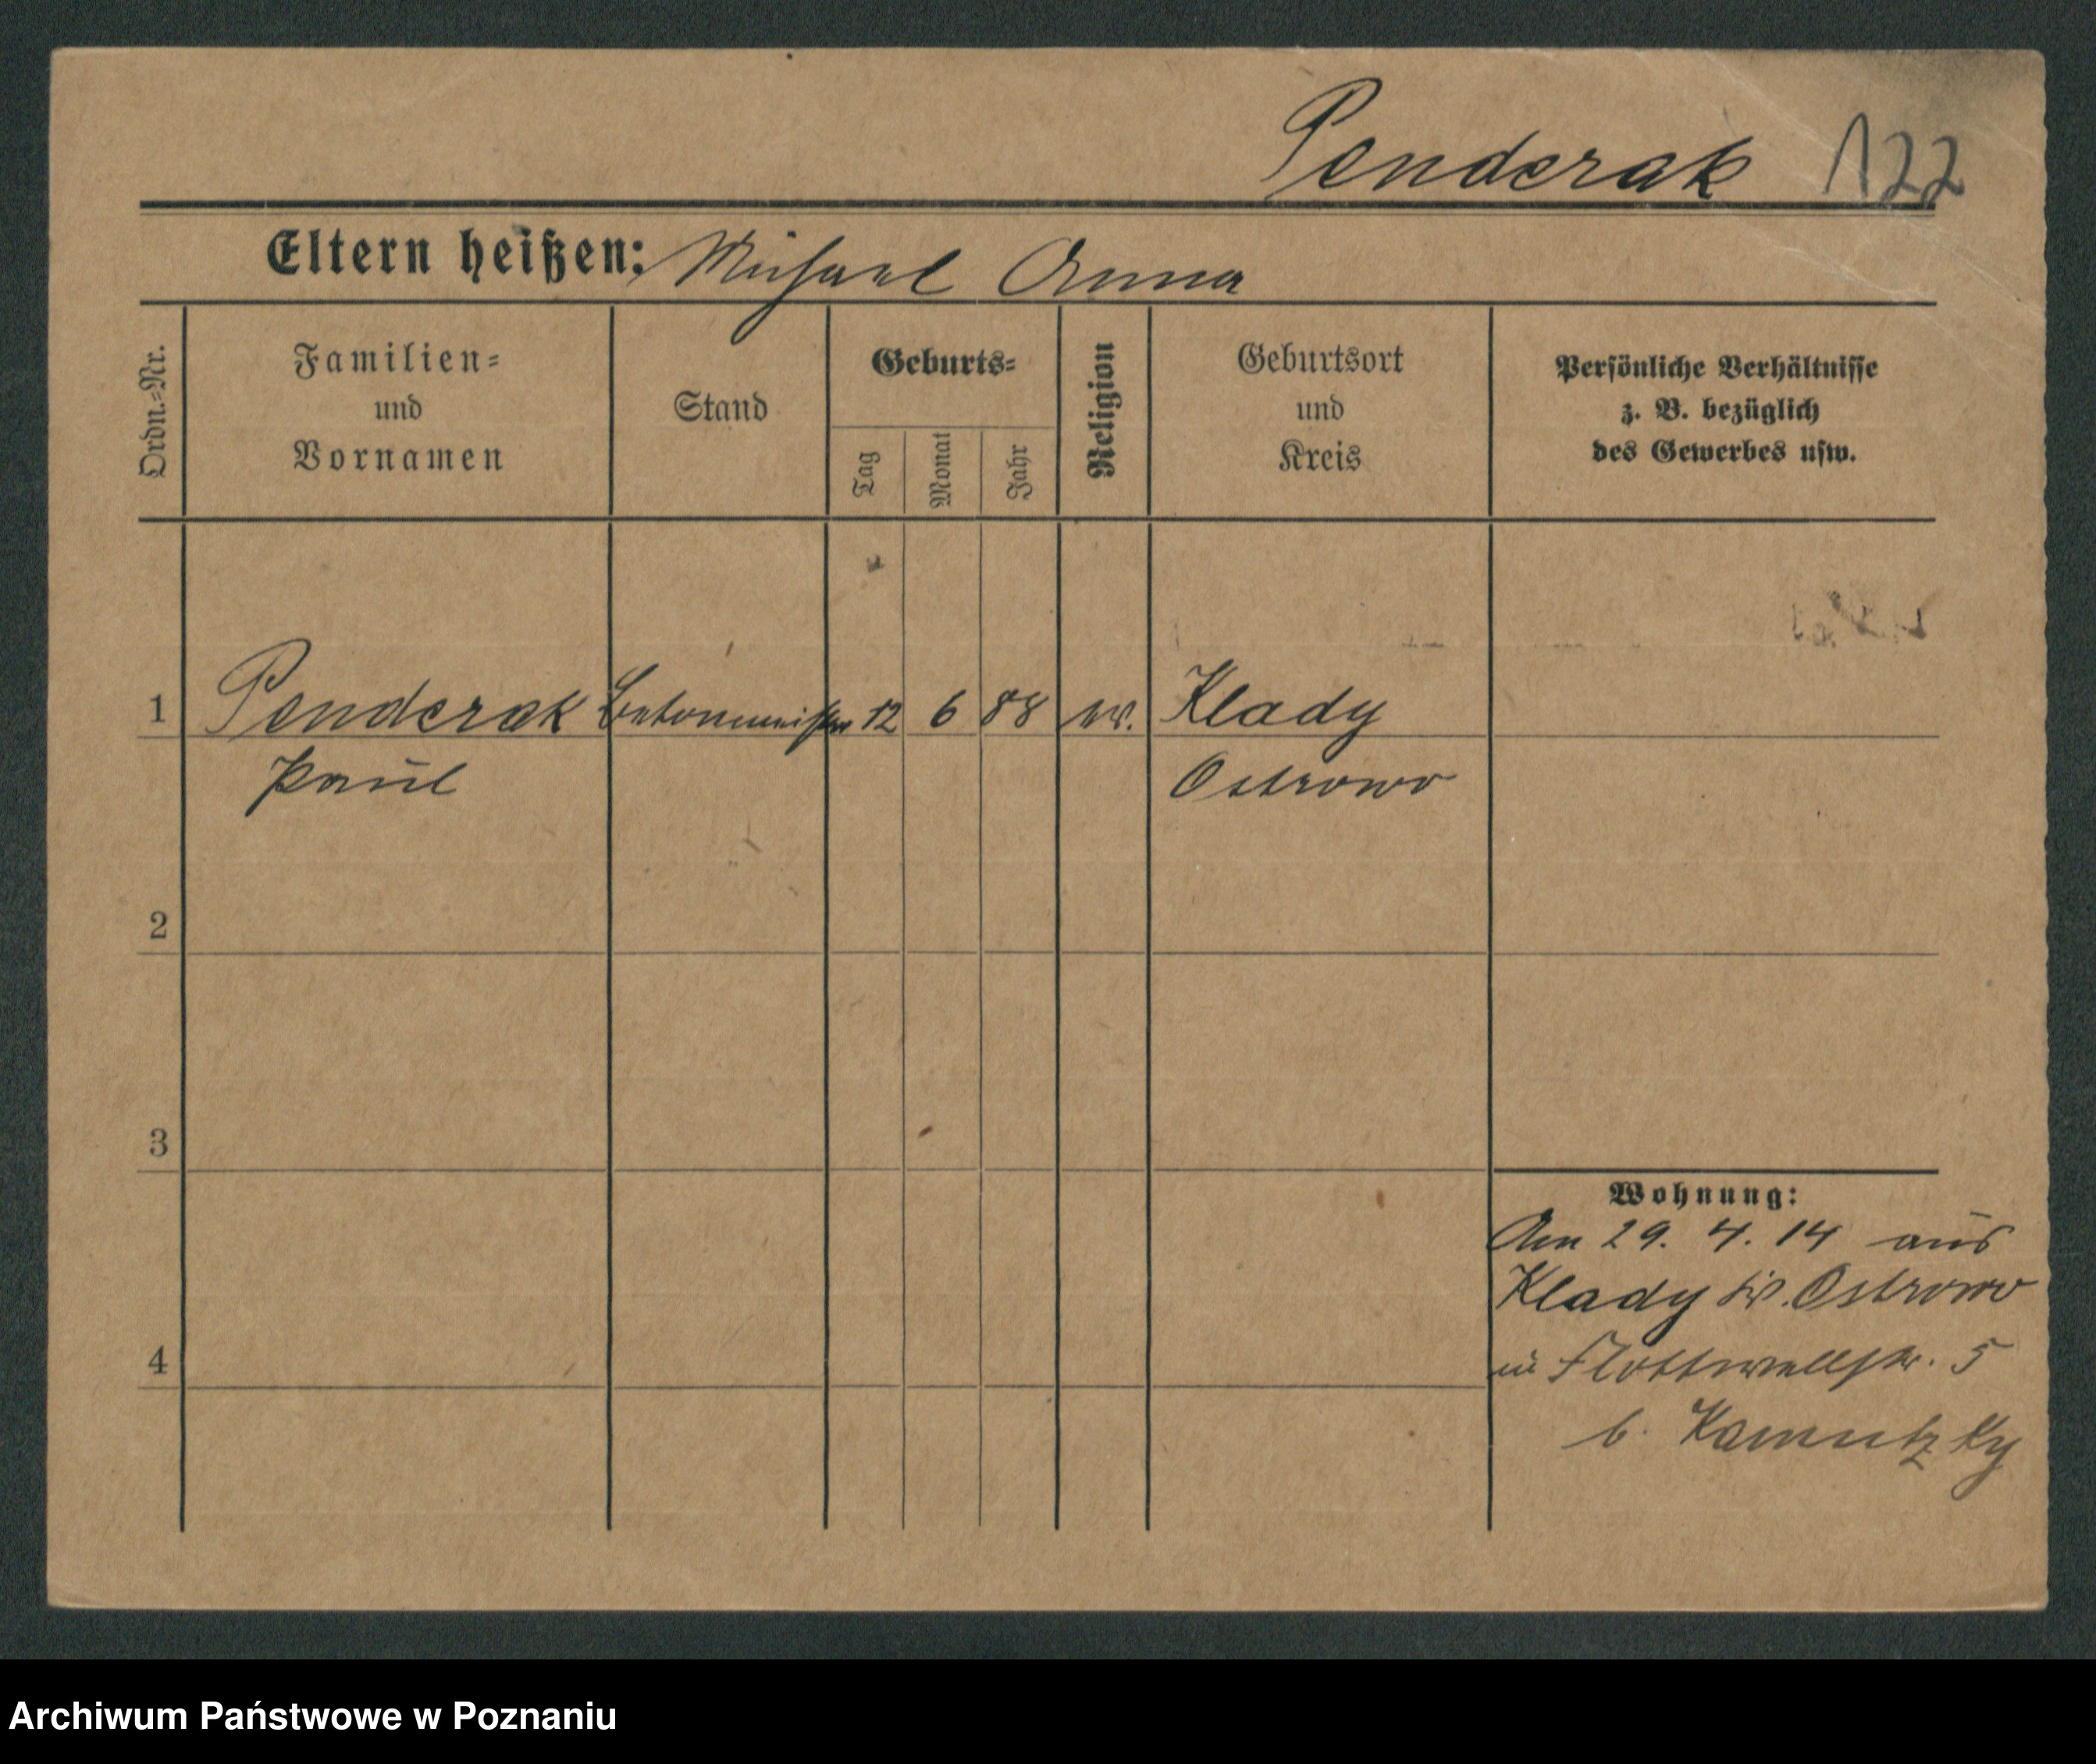 Penderak 122
Eltern heißen: Michael Anna
Ordn.=Nr.
Familien=
und
Vornamen
Stand
Geburts=
Tag
Monat
Jahr
Religion
Geburtsort
und
Kreis
Persönliche Verhältnisse
z. B. bezüglich
des Gewerbes usw.
1 Penderak 12 6 88 Klady
Paul Ostrowo
2
3
4
Wohnung:
Am 29. 4. 14 aus
Klady Ostrowo
in Flottwellstr. 5
b.
Archiwum Państwowe w Poznaniu